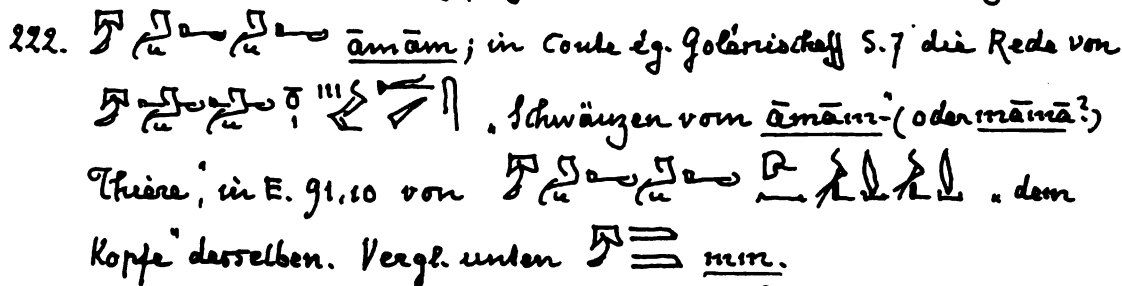 222. āmām; in Conte ég. Golénischeff S. 7 die Rede von
„Schwänzen vom āmām-(oder māmā?)
Thiere", in E. 91,10 von „dem
Kopfe" desselben. Vergl. unten mm.